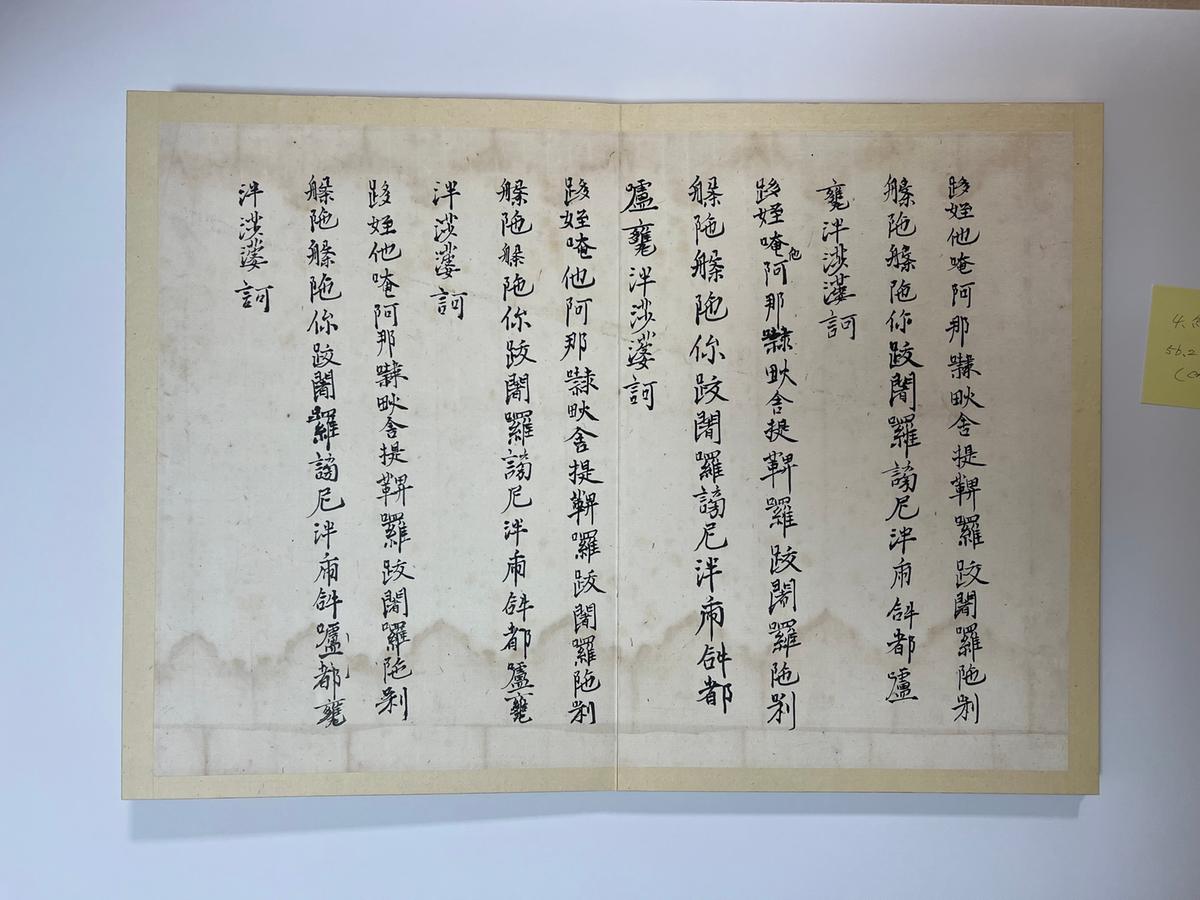 跢姪他唵阿那㘑毗舍提鞞囉跋闍囉陁唎
槃陁槃陁你跋闍囉謗尼泮虎𤙖都嚧
甕泮莎婆訶
跢姪唵他阿那㘑毗舍提鞞囉跋闍囉陁唎
槃陁槃陁你跋闍囉謗尼泮虎𤙖都
嚧甕泮莎婆訶
跢姪唵他阿那㘑毗舍提鞞囉跋闍囉陁唎
槃陁槃陁你跋闍囉謗尼泮虎𤙖都嚧甕
泮莎婆訶
跢姪他唵阿那㘑毗舍提鞞囉跋闍囉陁唎
槃陁槃陁你跋闍囉謗尼泮虎𤙖嚧都甕
泮莎婆訶